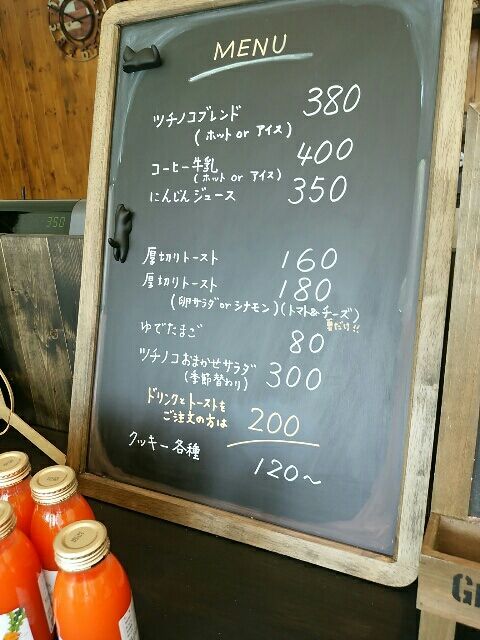 MENU
ツチノコブレンド 380
(ホット or アイス)
コーヒー牛乳 400
(ホット or アイス)
にんじんジュース 350
350
厚切りトースト 160
厚切りトースト 180
(卵サラダ or シナモン)(トマト&チーズ)
夏だけ!!
ゆでたまご 80
ツチノコおまかせサラダ 300
(季節替わり)
ドリンクとトーストを
ご注文の方は 200
クッキー各種 120〜